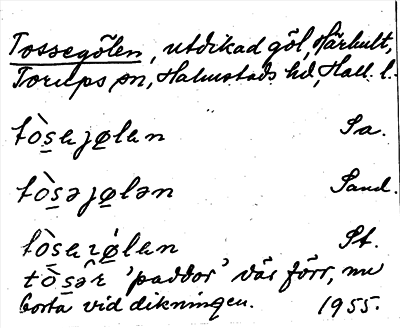 Tossegölen, utdikad göl, Hårhult,
Torups sn, Halmstads hd, Hall. l.
tòs̲ajø̲lan Sa.
tòs̲əjø̲lən Sand.
tòs̲aɿǿ̲lan St.
tòs̲âr 'paddor' där förr, nu
borta vid dikningen. 1955.